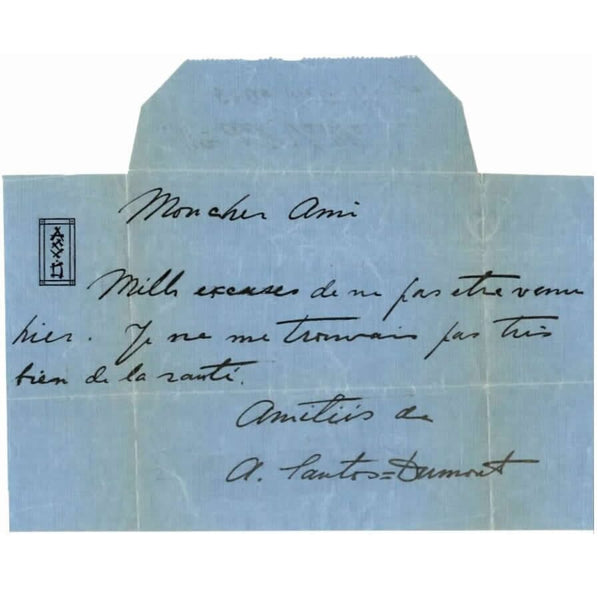 Mon cher Ami
Mille excuses de ne pas etre venu
hier. Je ne me trouvais pas très
bien de la santé.
Amitiés de
A. Santos=Dumont